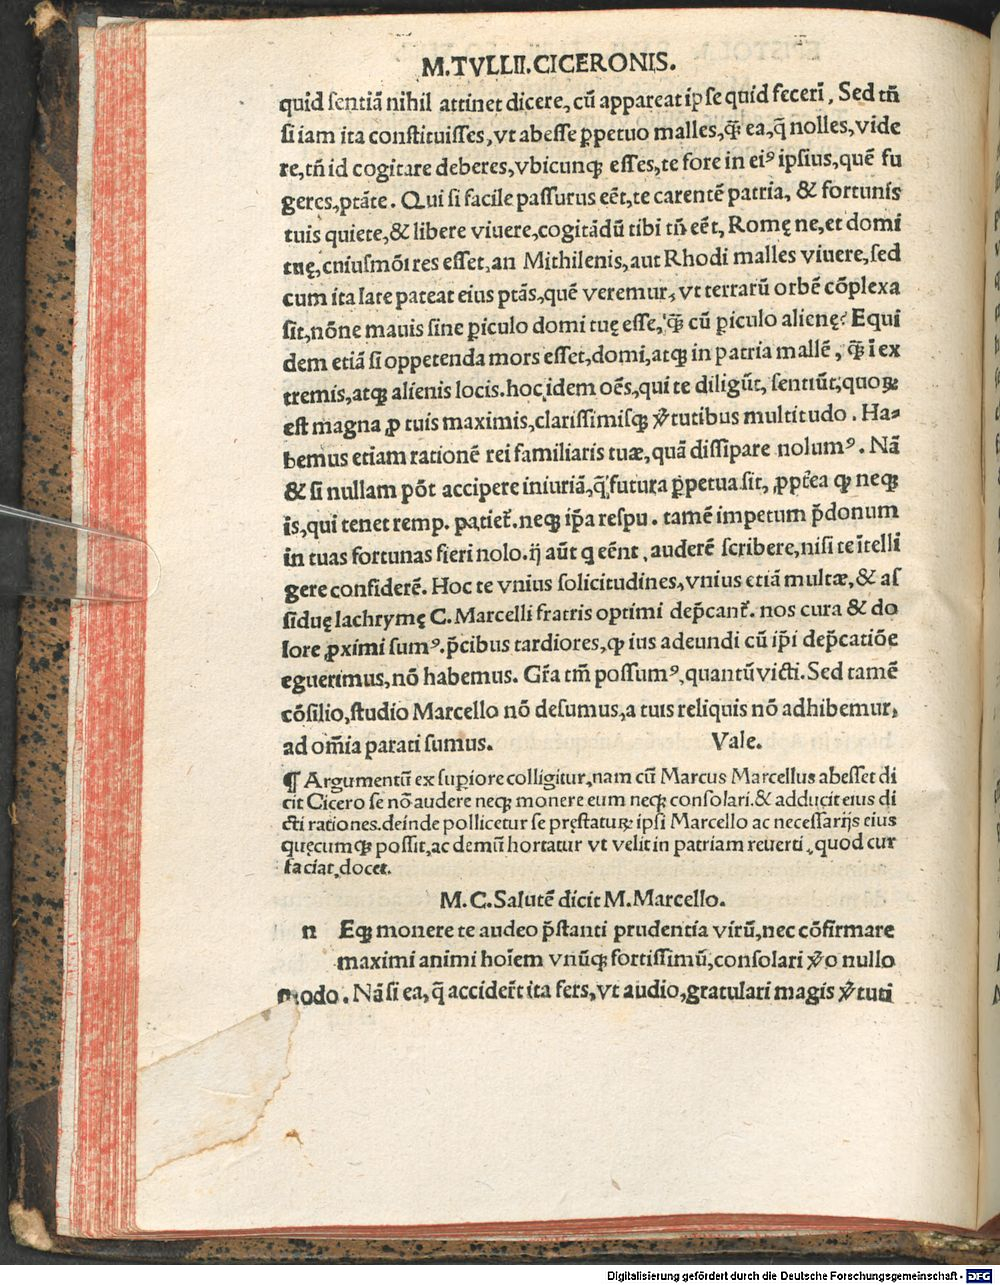 M.TVLLII.CICERONIS.
quid sentiā nihil attinet dicere, cū appareat ipse quid fecerī, Sed tn̄
si iam ita constituisses, vt abesse ꝑpetuo malles, ꝙ̄ ea, q̄ nolles, vide
re, tn̄ id cogitare deberes, vbicunqꝫ esses, te fore in eiꝰ ipsius, quē fu
geres, ptāte. Qui si facile passurus eēt, te carentē patria, & fortunis
tuis quiete, & libere viuere, cogitādū tibi tn̄ eēt, Romę ne, et domi
tuę, cniusmōi res esset, an Mithilenis, aut Rhodi malles viuere, sed
cum ita late pateat eius ptās, quē veremur, vt terrarū orbē cōplexa
sit, nōne mauis sine ꝑiculo domi tuę esse, ꝙ̄ cū ꝑiculo alienę? Equi
dem etiā si oppetenda mors esset, domi, atqꝫ in patria mallē, ꝙ̄ ī ex
tremis, atqꝫ alienis locis. hoc idem oēs, qui te diligūt, sentiūt, quoꝝ
est magna ꝓ tuis maximis, clarissimisqꝫ v̓tutibus multitudo. Ha⸗
bemus etiam rationē rei familiaris tuæ, quā dissipare nolumꝰ. Nā
& si nullam pōt accipere iniuriā, q̄ futura ꝑpetua sit, ꝓpt̄ea ꝙ neqꝫ
is, qui tenet remp. patiet̄. neqꝫ ip̄a respu. tamē impetum p̄donum
in tuas fortunas fieri nolo. ij aūt q eēnt, auderē scribere, nisi te ītelli
gere confiderē. Hoc te vnius solicitudines, vnius etiā multæ, & as
siduę lachrymę C. Marcelli fratris optimi dep̄cant̄. nos cura & do
lore ꝓximi sumꝰ. p̄cibus tardiores, ꝙ ius adeundi cū ip̄i dep̄catiōe
eguerimus, nō habemus. Gr̄a tm̄ possumꝰ, quantū victi. Sed tamē
cōsilio, studio Marcello nō desumus, a tuis reliquis nō adhibemur,
ad om̄ia parati sumus. Vale.
¶ Argumentū ex supiore colligitur, nam cū Marcus Marcellus abesset di
cit Cicero se nō audere neqꝫ monere eum neqꝫ consolari. & adducit eius di
cti rationes. deinde pollicetur se pręstatuꝝ ipsi Marcello ac necessarijs eius
quęcumqꝫ possit, ac demū hortatur vt velit in patriam reuerti, quod cur
faciat, docet.
M. C. Salutē dicit M. Marcello.
n Eqꝫ monere te audeo p̄stanti prudentia virū, nec cōfirmare
maximi animi hoīem vnūqꝫ fortissimū, consolari v̓o nullo
modo. Nā si ea, q̄ accider̄t ita fers, vt audio, gratulari magis v̓tuti
Digitalisierung gefördert durch die Deutsche Forschungsgemeinschaft - DFG